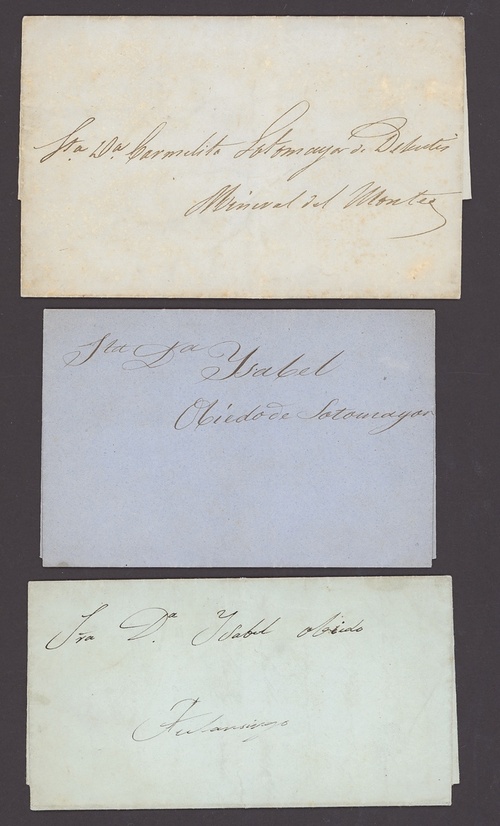 Sta Da Carmelita Sotomayor de
Mineral del Monte
Sta Da Ysabel
Obiedo de Sotomayor
Sra Da. Ysabel obiedo
Tulansingo